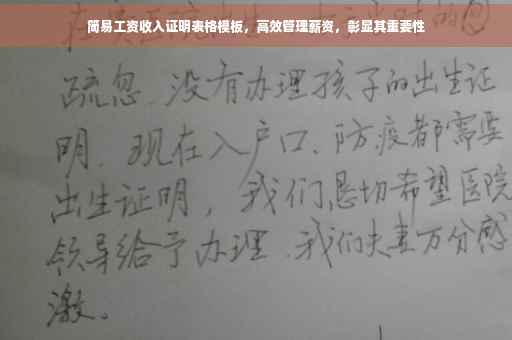 简易工资收入证明表格模板，高效管理薪资，彰显其重要性
疏忽、没有办理孩子的出生证
明、现在入户口、防疫都需要
出生证明，我们恳切希望医院
领导给予办理、我们夫妻万分感
激。